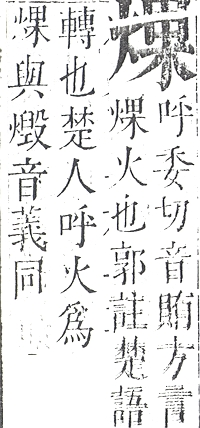 㷄呼委切音賄方言
㷄火也郭註楚語
轉也楚人呼火爲
㷄與燬音義同